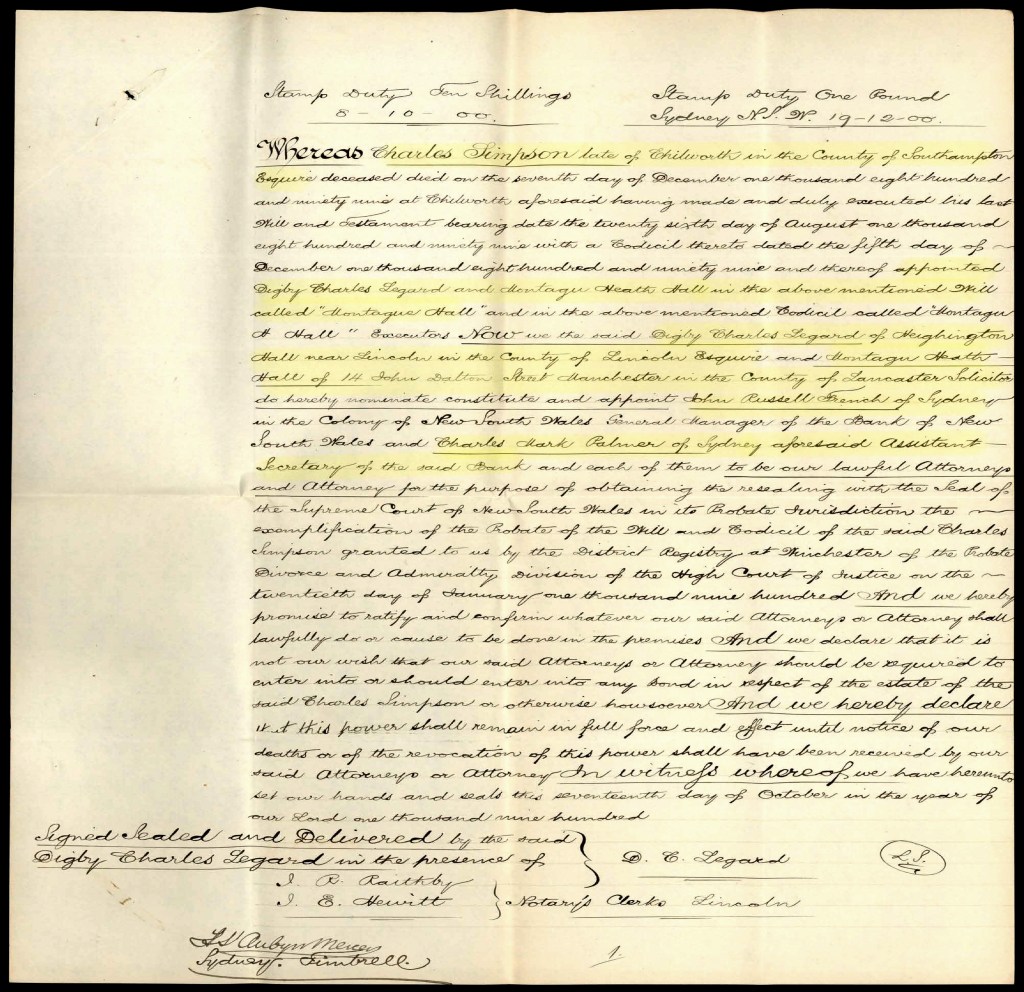 Stamp Duty Ten Shillings
8 - 10 - 00.
Stamp Duty One Pound
Sydney N.S.W. 19-12-00.
Whereas Charles Simpson late of Chilworth in the County of Southampton
Esquire deceased died on the seventh day of December one thousand eight hundred
and ninety nine at Chilworth aforesaid having made and duly executed his last
Will and Testament bearing date the twenty sixth day of August one thousand
eight hundred and ninety nine with a Codicil thereto dated the fifth day of
December one thousand eight hundred and ninety nine and thereof appointed
Digby Charles Legard and Montagu Heath Hall in the above mentioned Will
called "Montague Hall" and in the above mentioned Codicil called "Montagu
H Hall" Executors Now we the said Digby Charles Legard of Heighington
Hall near Lincoln in the County of Lincoln Esquire and Montagu Heath
Hall of 14 John Dalton Street Manchester in the County of Lancaster Solicitor
do hereby nominate constitute and appoint John Russell French of Sydney
in the Colony of New South Wales General Manager of the Bank of New
South Wales and Charles Mark Palmer of Sydney aforesaid Assistant
Secretary of the said Bank and each of them to be our lawful Attorneys
and Attorney for the purpose of obtaining the resealing with the Seal of
the Supreme Court of New South Wales in its Probate Jurisdiction the
exemplification of the Probate of the Will and Codicil of the said Charles
Simpson granted to us by the District Registry at Winchester of the Probate
Divorce and Admiralty Division of the High Court of Justice on the
twentieth day of January one thousand nine hundred And we hereby
promise to ratify and confirm whatever our said Attorneys or Attorney shall
lawfully do or cause to be done in the premises And we declare that it is
not our wish that our said Attorneys or Attorney should be required to
enter into or should enter into any bond in respect of the estate of the
said Charles Simpson or otherwise howsoever And we hereby declare
that this power shall remain in full force and effect until notice of our
deaths or of the revocation of this power shall have been received by our
said Attorneys or Attorney In witness whereof we have hereunto
set our hands and seals this seventeenth day of October in the year of
our Lord one thousand nine hundred
Signed Sealed and Delivered by the said
Digby Charles Legard in the presence of
D. C. Legard
L.S.
J. R. Raithby
J. E. Hewitt
Notary's Clerks Lincoln
Sydney. Timbrell.
1.